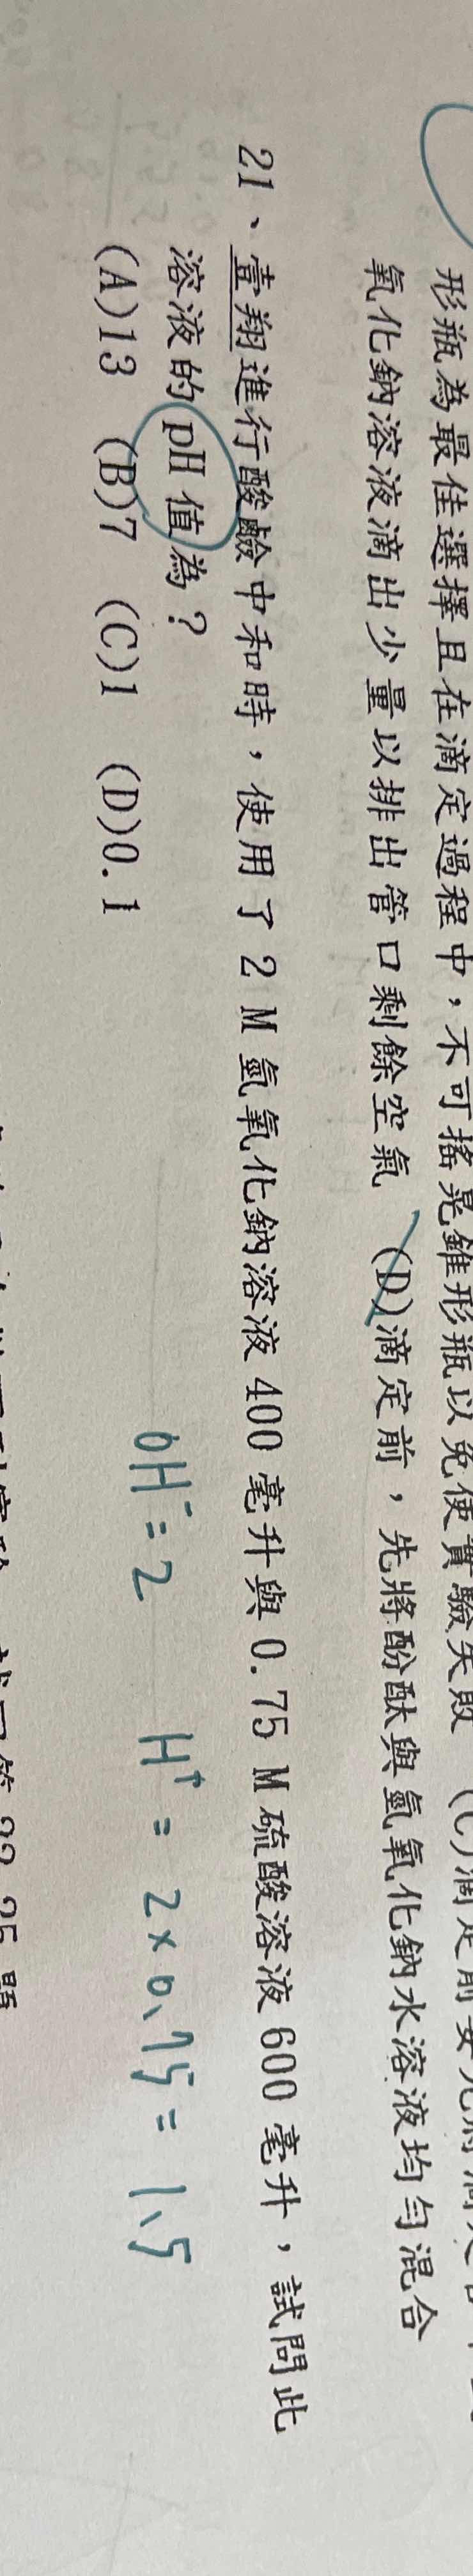 形瓶為最佳選擇且在滴定過程中，不可搖晃錐形瓶以免使實驗失敗 (C)滴定前要先將滴定
氧化鈉溶液滴出少量以排出管口剩餘空氣 (D)滴定前，先將酚酞與氫氧化鈉水溶液均勻混合
21、壹翔進行酸鹼中和時，使用了 2 M 氫氧化鈉溶液 400 毫升與 0.75 M 硫酸溶液 600 毫升，試問此
溶液的 pH 值為？
(A)13 (B)7 (C)1 (D)0.1
OH⁻=2 H⁺ = 2×0.75 = 1.5
22 25 題